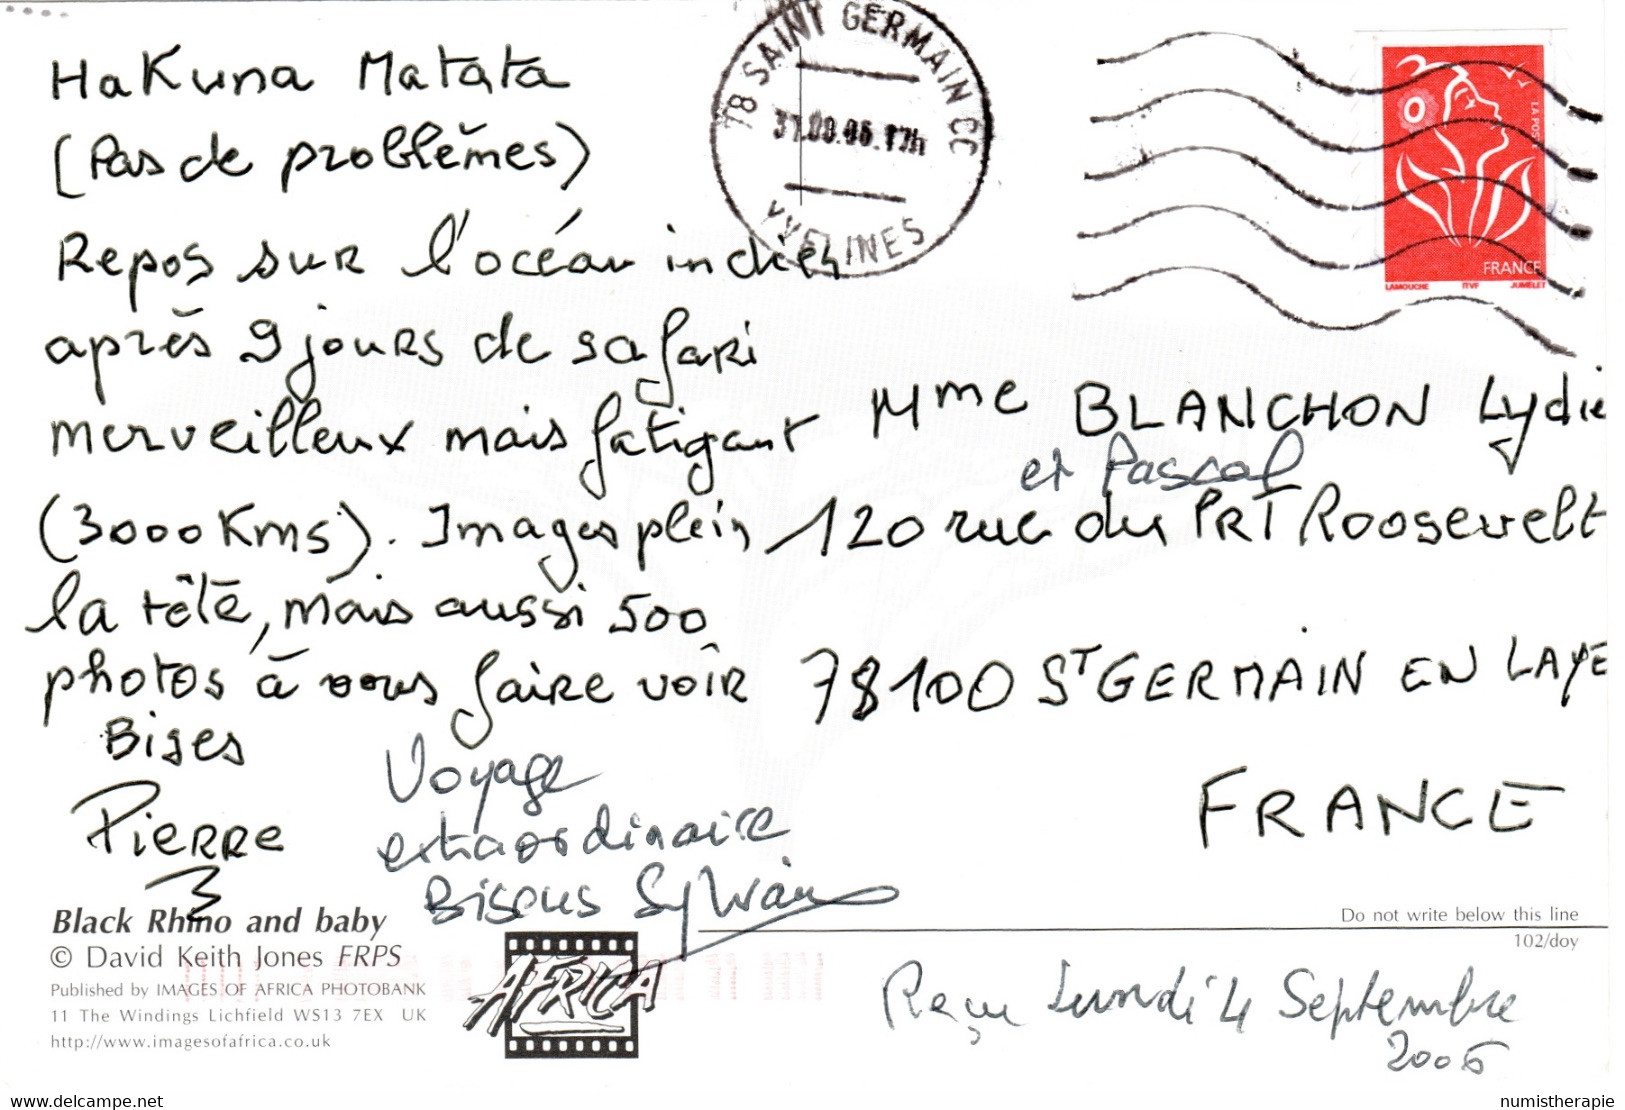 Hakuna Matata
(Pas de problèmes)
Repos sur l'océan indien
après 9 jours de safari
merveilleux mais fatigant
(3000 Kms). Images plein
la tête, mais aussi 500
photos à vous faire voir
Bises
Pierre
Voyage
extraordinaire
Bisous Sylvain
Black Rhino and baby
© David Keith Jones FRPS
Published by IMAGES OF AFRICA PHOTOBANK
11 The Windings Lichfield WS13 7EX UK
http://www.imagesofafrica.co.uk
AFRICA
78 SAINT GERMAIN CC
YVELINES
LA POSTE
FRANCE
LAMOUCHE ITVF JUMELET
Mme BLANCHON Lydie
et Pascal
120 rue du PRT Roosevelt
78100 ST GERMAIN EN LAYE
FRANCE
Do not write below this line
102/doy
Reçu Lundi 4 Septembre
2006
www.delcampe.net
numistherapie